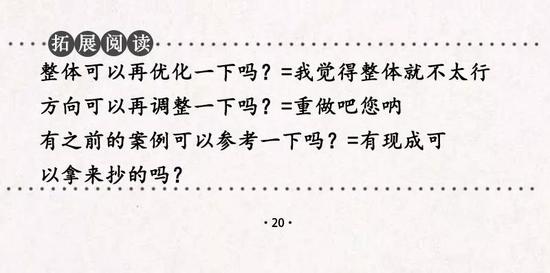 拓展阅读
整体可以再优化一下吗？=我觉得整体就不太行
方向可以再调整一下吗？=重做吧您呐
有之前的案例可以参考一下吗？=有现成可
以拿来抄的吗？
·20·